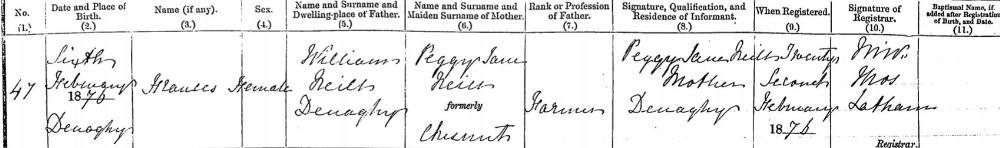 No. Date and Place of Birth. Name (if any). Sex. Name and Surname and Dwelling-place of Father. Name and Surname and Maiden Surname of Mother. Rank or Profession of Father. Signature, Qualification, and Residence of Informant. When Registered. Signature of Registrar. Baptismal Name, if added after Registration of Birth, and Date.
(1.) (2.) (3.) (4.) (5.) (6.) (7.) (8.) (9.) (10.) (11.)
Sixth William Peggy Jane Peggy Jane Neill Twenty Wm.
47 February Frances Female Neill Neill Mother Second
1876 Denaghy formerly Farmer Denaghy February Latham
Denaghy Chesnut 1876
Registrar.